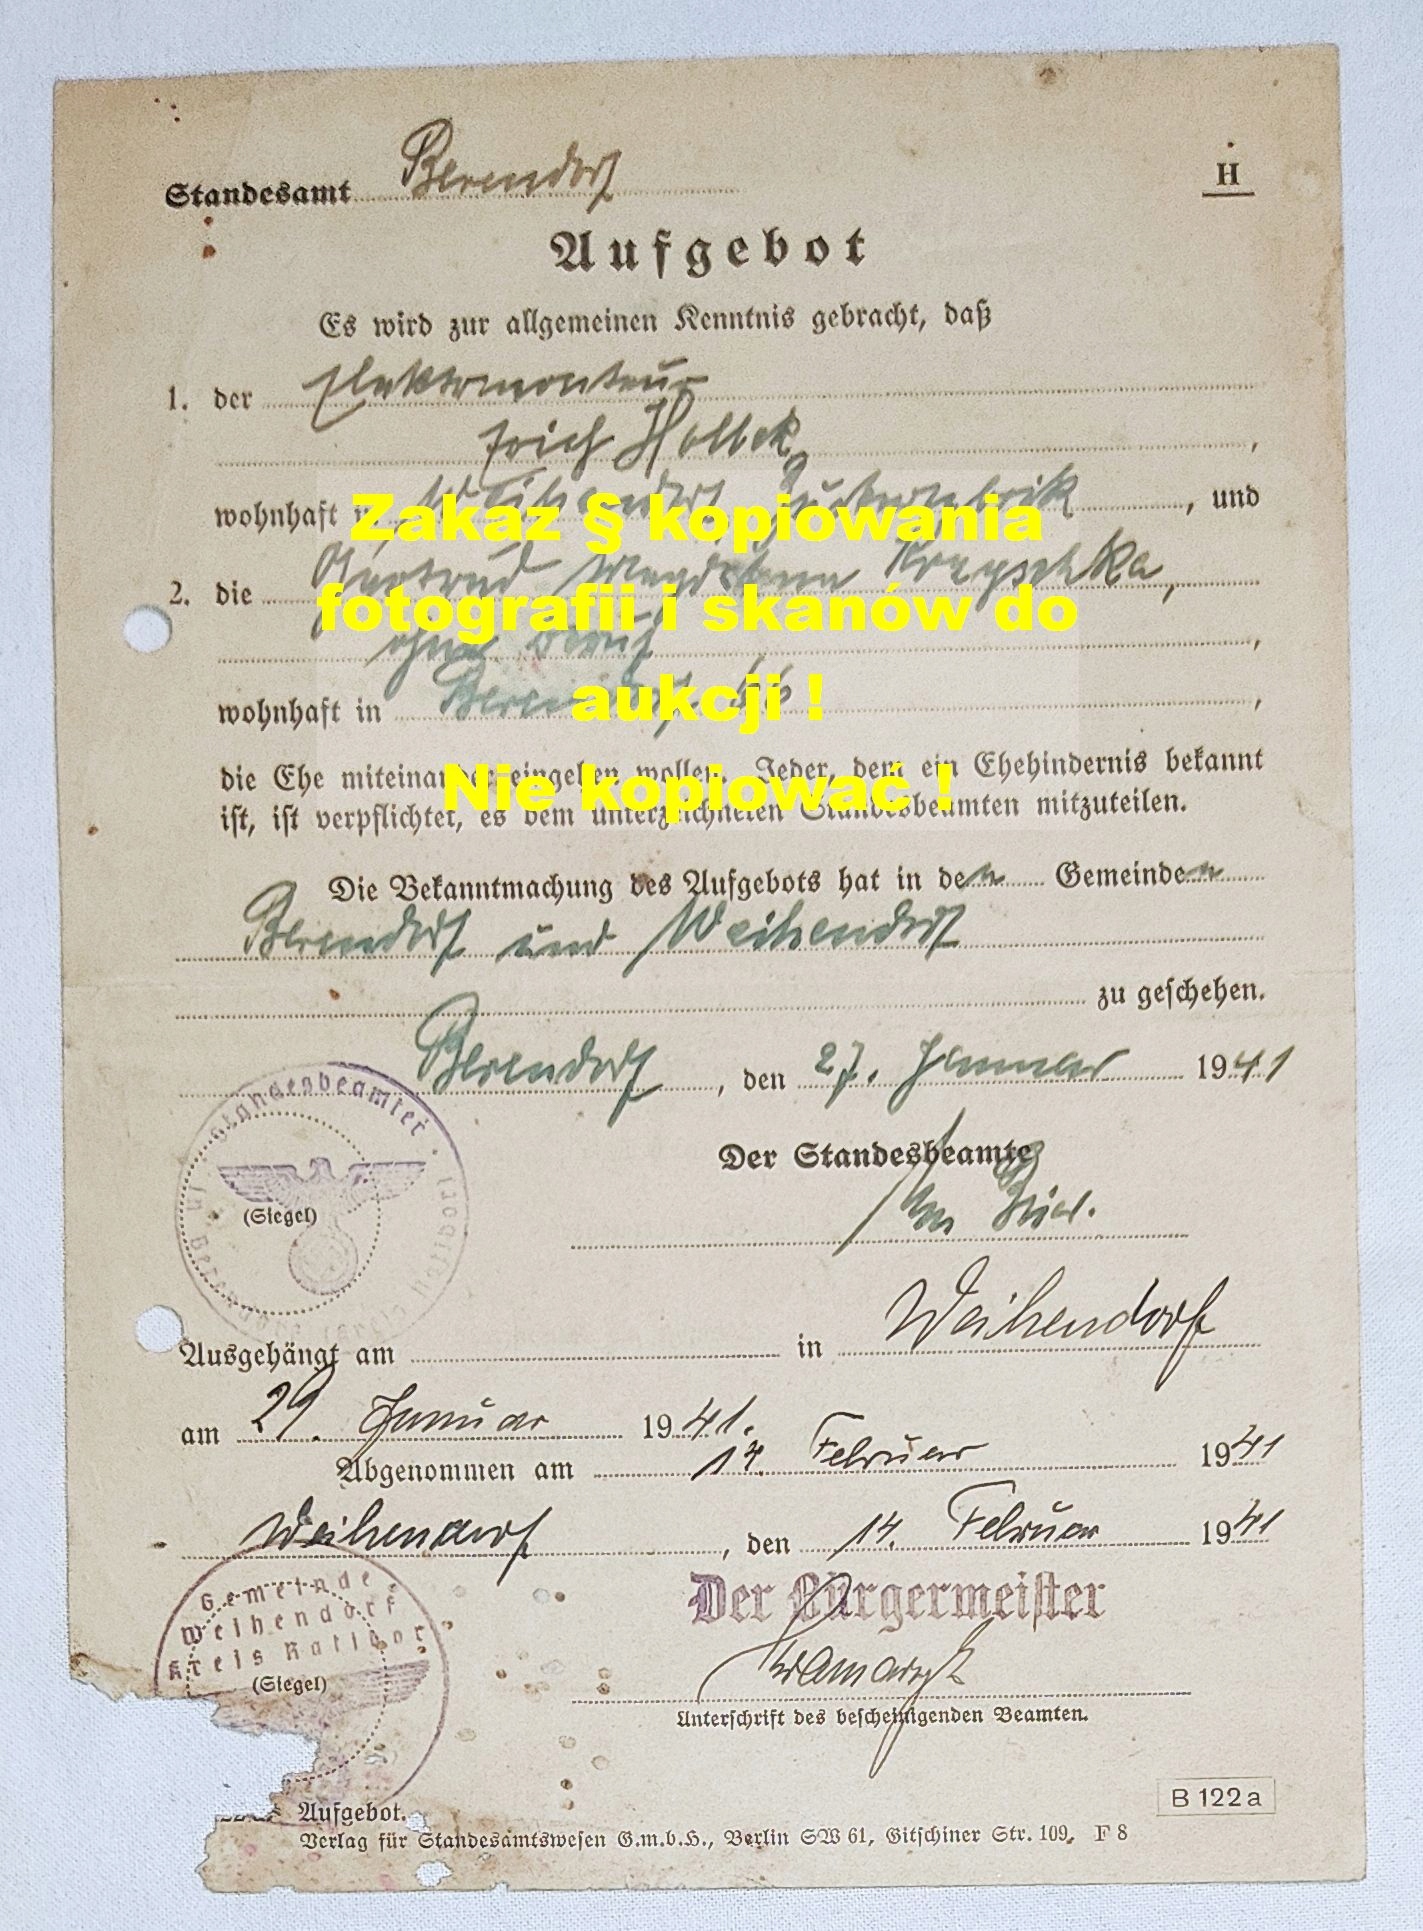 Standesamt Berendorf
H
Aufgebot
Es wird zur allgemeinen Kenntnis gebracht, daß
1. der Elektromonteur
Erich Holbek,
wohnhaft in Weihendorf Zuckerfabrik, und
2. die Gertrud Magdalena
ohne Beruf,
wohnhaft in Berendorf 66,
die Ehe miteinander eingehen wollen. Jeder, dem ein Ehehindernis bekannt
ist, ist verpflichtet, es dem unterzeichneten Standesbeamten mitzuteilen.
Zakaz § kopiowania
fotografii i skanów do
aukcji !
Nie kopiować !
Die Bekanntmachung des Aufgebots hat in den Gemeinden
Berendorf und Weihendorf
zu geschehen.
Berendorf, den 27. Januar 1941
Der Standesbeamte
(Siegel)
Ausgehängt am in Weihendorf
am 29. Januar 1941.
Abgenommen am 14. Februar 1941
Weihendorf, den 14. Februar 1941
Der Bürgermeister
Gemeinde
Weihendorf
Kreis Ratibor
(Siegel)
Unterschrift des bescheinigenden Beamten.
B 122a
Aufgebot.
Verlag für Standesamtswesen G.m.b.H., Berlin SW 61, Gitschiner Str. 109. F 8